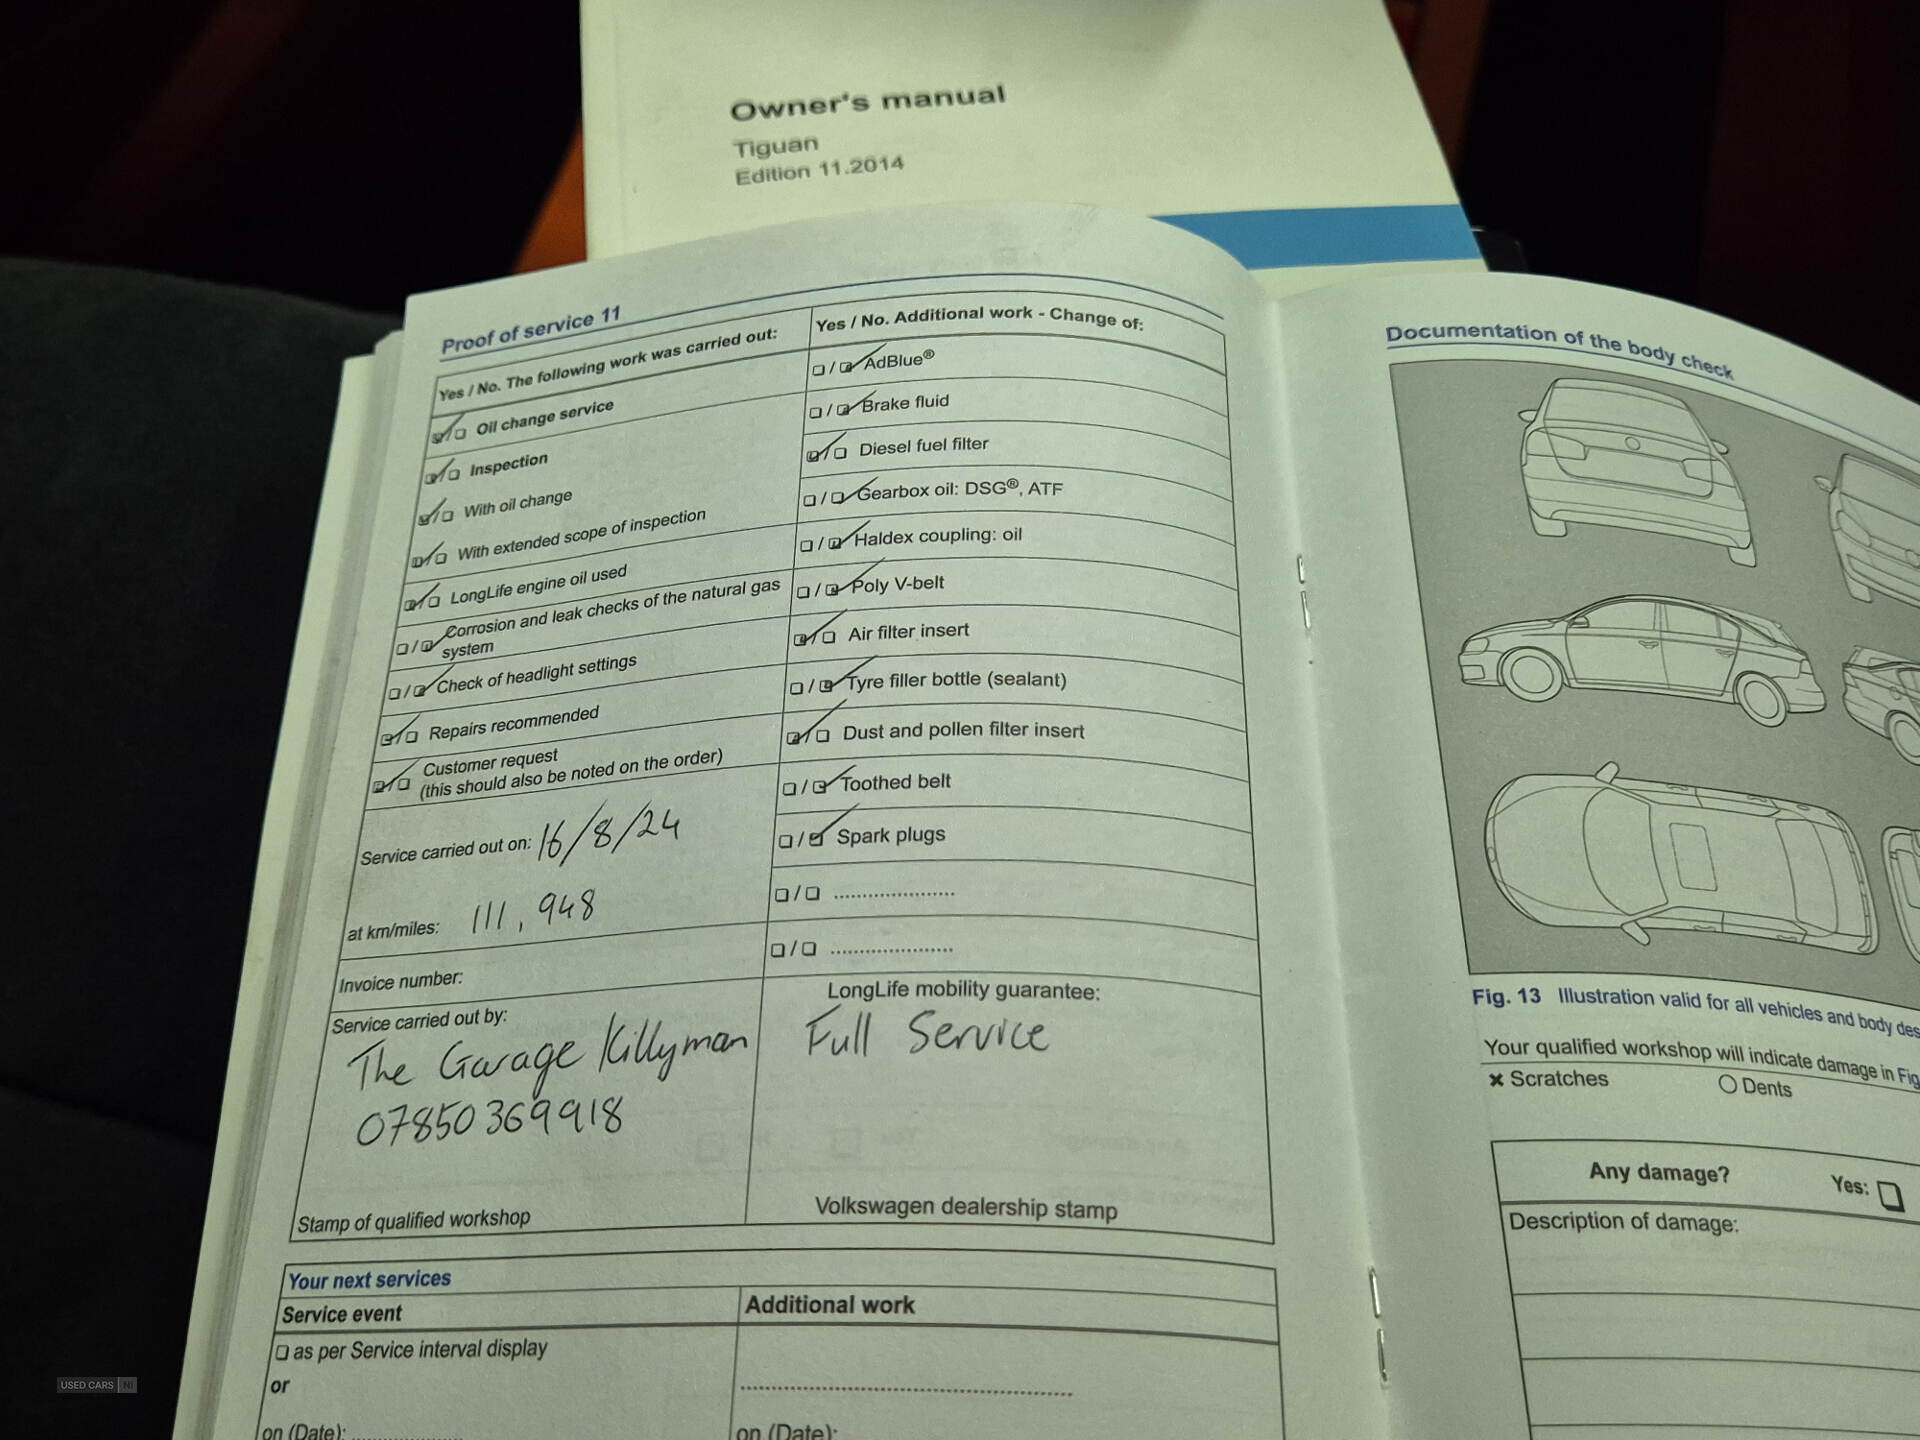 Owner's manual
Tiguan
Edition 11.2014
Proof of service 11
Yes / No. The following work was carried out:
Oil change service
Inspection
With oil change
With extended scope of inspection
LongLife engine oil used
Corrosion and leak checks of the natural gas
system
Check of headlight settings
Repairs recommended
Customer request
(this should also be noted on the order)
Service carried out on: 16/8/24
at km/miles: 111,948
Invoice number:
Service carried out by:
The Garage Killyman
07850369918
Stamp of qualified workshop
Yes / No. Additional work - Change of:
AdBlue®
Brake fluid
Diesel fuel filter
Gearbox oil: DSG®, ATF
Haldex coupling: oil
Poly V-belt
Air filter insert
Tyre filler bottle (sealant)
Dust and pollen filter insert
Toothed belt
Spark plugs
LongLife mobility guarantee:
Full Service
Volkswagen dealership stamp
Your next services
Service event
as per Service interval display
or
on (Date):
Additional work
on (Date):
Documentation of the body check
Fig. 13 Illustration valid for all vehicles and body des
Your qualified workshop will indicate damage in Fig
× Scratches
Dents
Any damage?
Yes:
Description of damage:
USED CARS NI